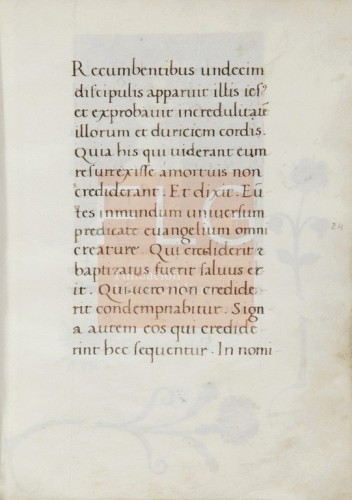 Recumbentibus undecim
discipulis apparuit illis ies⁹
et exprobauit incredulitatē
illorum et duriciem cordis.
Quia his qui uiderant eum
resurrexisse amortuis non
crediderant. Et dixit. Eū
tes inmundum uniuersum
predicate euangelium omni
creature. Qui crediderit &
baptizatus fuerit saluus er
it. Qui uero non credide
rit condempnabitur. Sign
a autem eos qui credide
rint hec sequentur. In nomi
LC